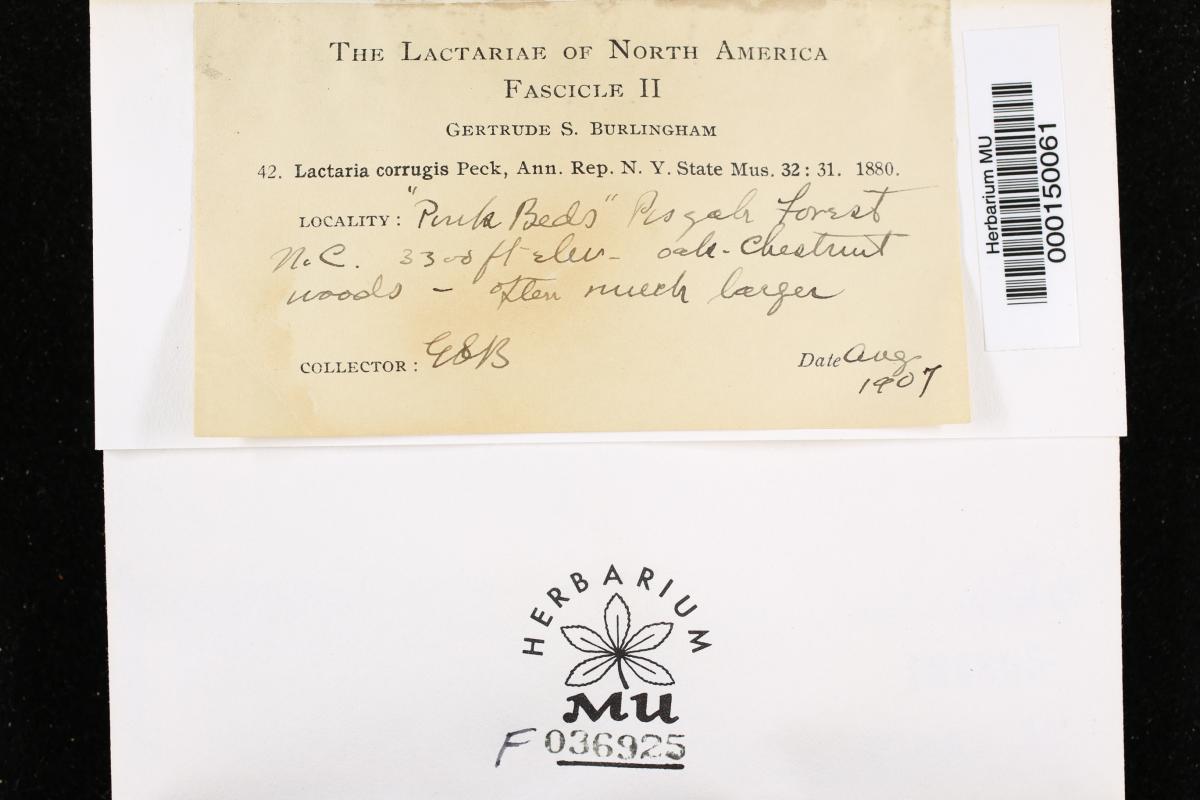 THE LACTARIAE OF NORTH AMERICA
FASCICLE II
GERTRUDE S. BURLINGHAM
42. Lactaria corrugis Peck, Ann. Rep. N. Y. State Mus. 32: 31. 1880.
LOCALITY: "Pink Beds" Pisgah forest
N.C. 3300 ft elev- oak-Chestnut
woods - often much larger
COLLECTOR: GSB
Date Aug
1907
Herbarium MU
000150061
HERBARIUM
MU
F 036925